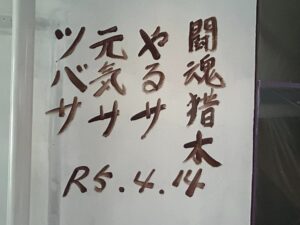 闘魂猪木
やるサ
元気サ
ツバサ
R5.4.14